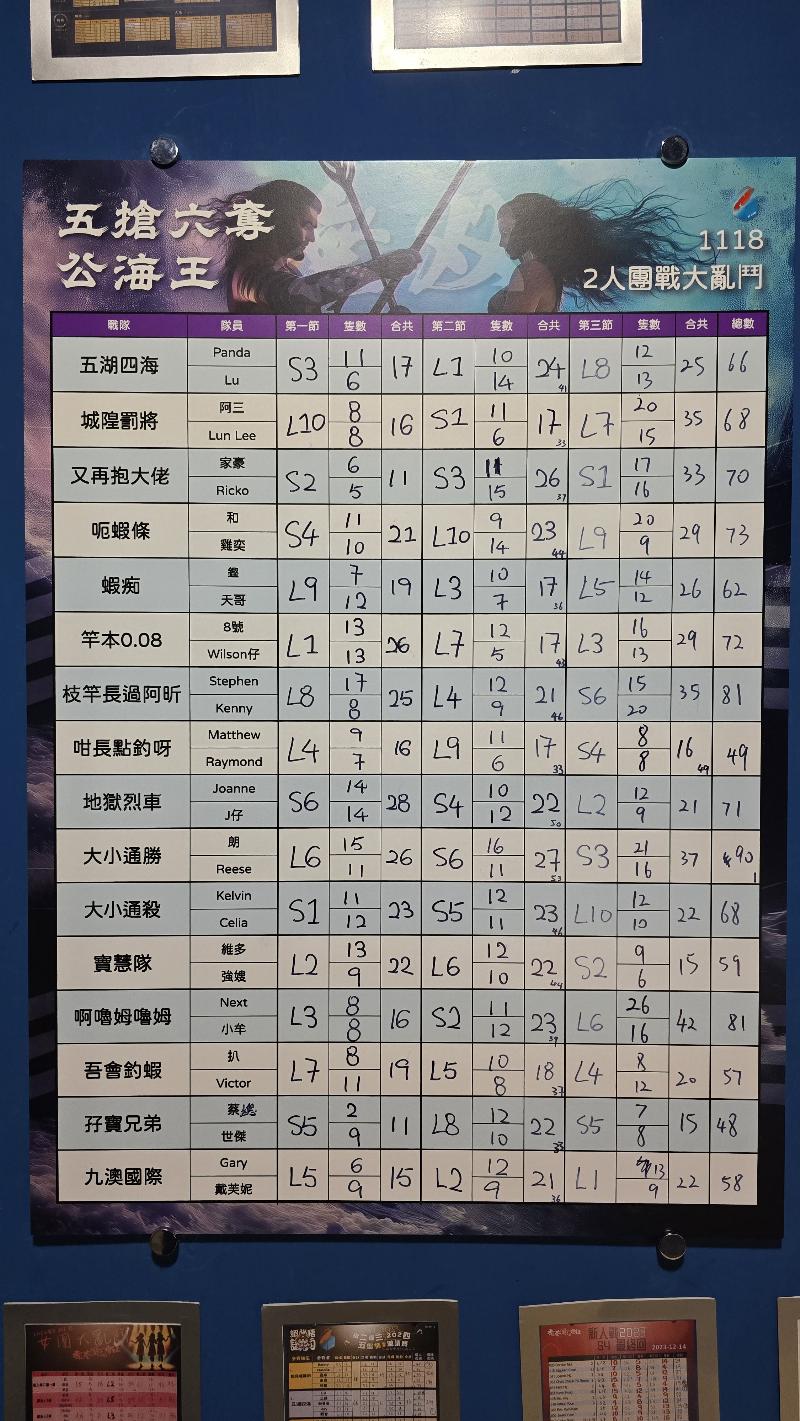 五搶六奪
公海王
1118
2人團戰大亂鬥
戰隊 隊員 第一節 隻數 合共 第二節 隻數 合共 第三節 隻數 合共 總數
五湖四海 Panda S3 11 17 L1 10 24 L8 12 25 66
Lu 6 14 41 13
城隍罰將 阿三 L10 8 16 S1 11 17 L7 20 35 68
Lun Lee 8 6 33 15
又再抱大佬 家豪 S2 6 11 S3 11 26 S1 17 33 70
Ricko 5 15 37 16
呃蝦條 和 S4 11 21 L10 9 23 L9 20 29 73
雞奕 10 14 44 9
蝦痴 鏗 L9 7 19 L3 10 17 L5 14 26 62
天哥 12 7 36 12
竿本0.08 8號 L1 13 26 L7 12 17 L3 16 29 72
Wilson仔 13 5 43 13
枝竿長過阿昕 Stephen L8 17 25 L4 12 21 S6 15 35 81
Kenny 8 9 46 20
咁長點釣呀 Matthew L4 9 16 L9 11 17 S4 8 16 49
Raymond 7 6 33 8 49
地獄烈車 Joanne S6 14 28 S4 10 22 L2 12 21 71
J仔 14 12 50 9
大小通勝 朗 L6 15 26 S6 16 27 S3 21 37 90
Reese 11 11 53 16 1
大小通殺 Kelvin S1 11 23 S5 12 23 L10 12 22 68
Celia 12 11 46 10
寶慧隊 維多 L2 13 22 L6 12 22 S2 9 15 59
強嫂 9 10 44 6
啊嚕姆嚕姆 Next L3 8 16 S2 11 23 L6 26 42 81
小牟 8 12 39 16
吾會釣蝦 扒 L7 8 19 L5 10 18 L4 8 20 57
Victor 11 8 37 12
孖寶兄弟 蔡 S5 2 11 L8 12 22 S5 7 15 48
世傑 9 10 33 8
九澳國際 Gary L5 6 15 L2 12 21 L1 13 22 58
戴芙妮 9 9 36 9
新人戰2023
2023-12-14